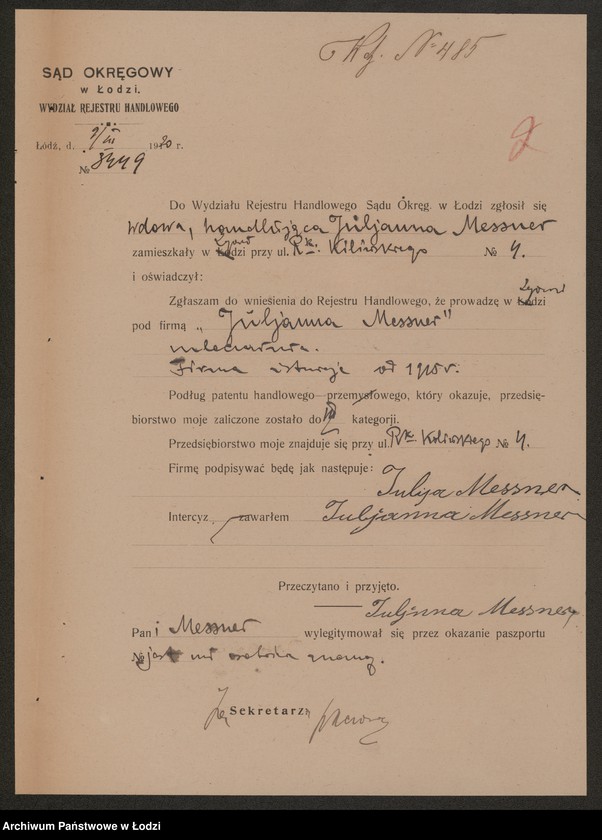 Rej. № 485
SĄD OKRĘGOWY
w Łodzi.
WYDZIAŁ REJESTRU HANDLOWEGO
Łódź, d. 9/III 1920 r.
№ 8449
2
Do Wydziału Rejestru Handlowego Sądu Okręg. w Łodzi zgłosił się
wdowa, handlująca Juljanna Messner
zamieszkały w Łodzi przy ul. Kilińskiego № 4.
i oświadczył:
Zgierzu
Zgłaszam do wniesienia do Rejestru Handlowego, że prowadzę w Łodzi
pod firmą „Juljanna Messner"
mleczarnia.
Firma istnieje od 1915 r.
Podług patentu handlowego przemysłowego, który okazuje, przedsię-
biorstwo moje zaliczone zostało do III kategorji.
Przedsiębiorstwo moje znajduje się przy ul. Kilińskiego № 4.
Firmę podpisywać będę jak następuje:
Julija Messner
Intercyz zawarłem Juljanna Messner
Przeczytano i przyjęto.
Juljnna Messner
Pani Messner wylegitymował się przez okazanie paszportu
№ jest mi osobiście znaną.
Za Sekretarz
Archiwum Państwowe w Łodzi